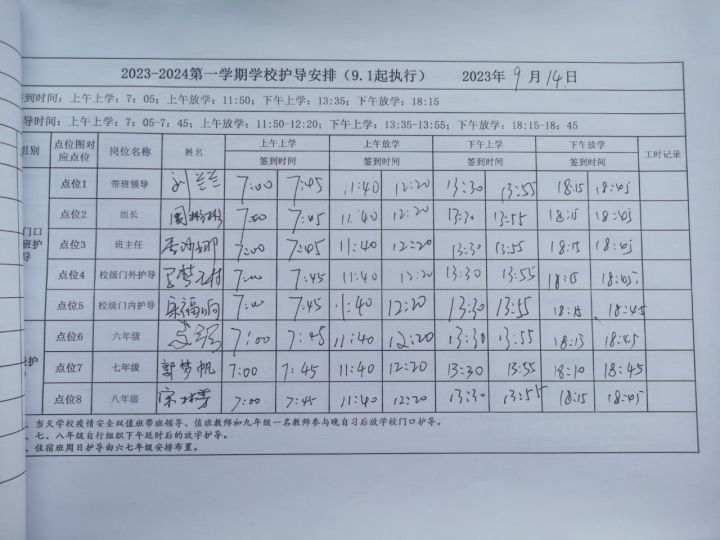 2023-2024第一学期学校护导安排（9.1起执行） 2023年9月14日
到时间：上午上学：7：05；上午放学：11:50；下午上学：13:35；下午放学：18:15
导时间：上午上学：7：05-7：45；上午放学：11:50-12:20；下午上学：13:35-13:55；下午放学：18:15-18：45
组别 点位图对应点位 岗位名称 姓名 上午上学 签到时间 上午放学 签到时间 下午上学 签到时间 下午放学 签到时间 工时记录
门口
班护
导
点位1 带班领导 刘兰兰 7:00 7:45 11:40 12:20 13:30 13:55 18:15 18:45
点位2 组长 周彬彬 7:00 7:45 11:40 12:20 13:30 13:55 18:15 18:45
点位3 班主任 7:00 7:45 11:40 12:20 13:30 13:55 18:15 18:45
点位4 校级门外护导 7:00 7:45 11:40 12:20 13:30 13:55 18:15 18:45
点位5 校级门内护导 7:00 7:45 11:40 12:20 13:30 13:55 18:15 18:45
护
点位6 六年级 7:00 7:45 11:40 12:20 13:30 13:55 18:15 18:45
点位7 七年级 郭梦帆 7:00 7:45 11:40 12:20 13:30 13:55 18:10 18:45
点位8 八年级 7:00 7:45 11:40 12:20 13:30 13:55 18:15 18:45
、当天学校疫情安全双值班带班领导、值班教师和九年级一名教师参与晚自习后放学校门口护导。
、七、八年级自行组织下午延时后的放学护导。
、住宿班周日护导由六七年级安排布置。